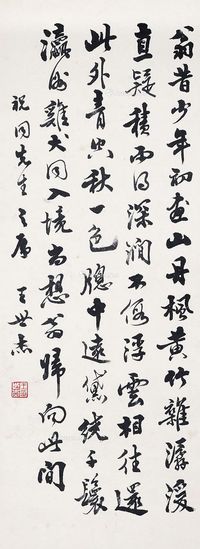 翁昔少年初畫山丹楓黃竹雜潺湲
直疑積雨得深潤不假浮雲相往還
此外青空秋一色牕中遠黛繞千鬟
瀛洲雞犬同人境尚想翁歸向此間
祝同先生之屬 王世杰